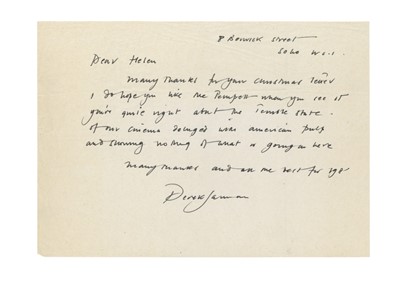 8 Berwick Street
Soho W.C.1
Dear Helen
Many thanks for your Christmas letter
I do hope you like The Tempest when you see it
you're quite right about the terrible state
of our cinema deluged with american pulp
and showing nothing of what is going on here
many thanks and all the best for
Derek Jarman